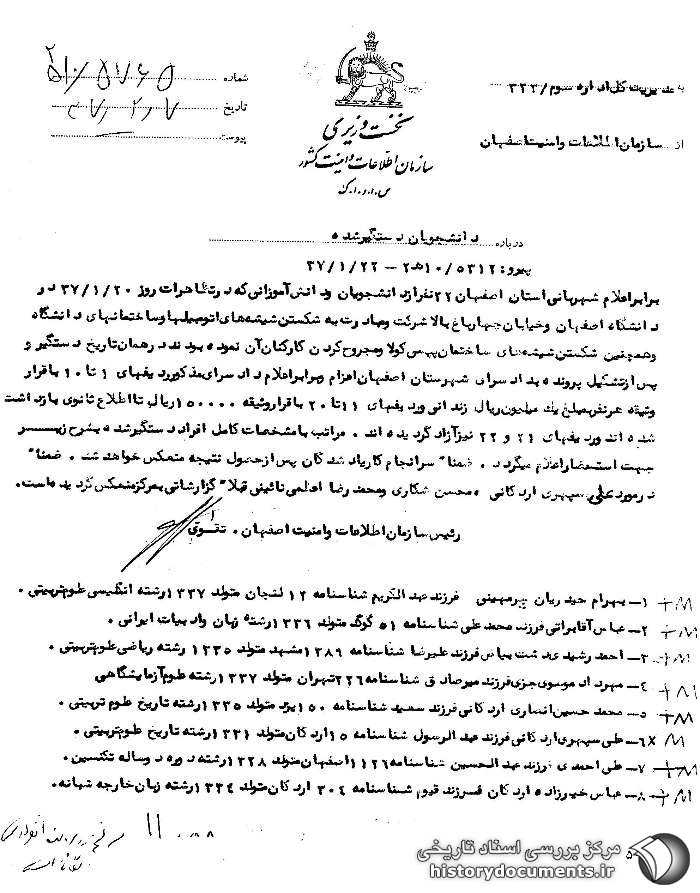 شماره ۵۷۶۵/۵۱۰۲
تاریخ ۳۷/۲/۷
پیوست
نخست وزیری
سازمان اطلاعات و امنیت کشور
س.ا.و.ا.ک
به مدیریت کل اداره سوم/۳۳۳
از سازمان اطلاعات و امنیت اصفهان
درباره دانشجویان دستگیرشده
پیرو: ۵۳۱۲/۱۰ه۲ – ۳۷/۱/۲۲
برابر اعلام شهربانی استان اصفهان ۲۲ نفر از دانشجویان و دانش آموزانی که در تظاهرات روز ۳۷/۱/۲۰ در و
دانشگاه اصفهان و خیابان چهارباغ بالا شرکت و مبادرت به شکستن شیشه های اتومبیلها و ساختمانهای دانشگاه
و همچنین شکستن شیشه های ساختمان پپسی کولا و مجروح کردن کارکنان آن نموده بودند در همان تاریخ دستگیر و
پس از تشکیل پرونده به دادسرای شهرستان اصفهان اعزام و برابر اعلام دادسرای مذکور ردیفهای ۱ تا ۱۰ با قرار
وثیقه هر نفر مبلغ یک میلیون ریال زندانی و ردیفهای ۱۱ تا ۲۰ با قرار وثیقه ۱۵۰۰۰۰ ریال تا اطلاع ثانوی بازداشت
شده اند و ردیفهای ۲۱ و ۲۲ نیز آزاد گردیده اند . مراتب با مشخصات کامل افراد دستگیر شده بشرح زیر
جهت استحضار اعلام میگردد . ضمنا" سرانجام کار یاد شدگان پس از حصول نتیجه منعکس خواهد شد . ضمنا"
در مورد علی سپهری اردکانی ، محسن شکاری و محمد رضا اعظمی نائینی قبلا" گزارشاتی بمرکز منعکس گردیده است.
رئیس سازمان اطلاعات و امنیت اصفهان . تقوی
۱– بهرام حیدریان فرزند عبدالکریم شناسنامه ۱۲ لنجان متولد ۱۳۳۷ رشته انگلیسی علوم تربیتی .
۲– عباس آقابراتی فرزند محمد علی شناسنامه ۵۱ گوگد متولد ۱۳۳۶ رشته زبان و ادبیات ایرانی .
۳– احمد رشیدی دشت بیاض فرزند علیرضا شناسنامه ۱۳۸۹ مشهد متولد ۱۳۳۵ رشته ریاضی علوم تربیتی .
۴– مهرداد موسوی جزی فرزند میرصادق شناسنامه ۲۲۶ تهران متولد ۱۳۳۷ رشته علوم آزمایشگاهی
۵– محمد حسین انصاری اردکانی فرزند سعید شناسنامه ۱۵۰ یزد متولد ۱۳۳۵ رشته تاریخ علوم تربیتی .
۶– علی سپهری اردکانی فرزند عبدالرسول شناسنامه ۱۵ اردکان متولد ۱۳۳۱ رشته تاریخ علوم تربیتی .
۷– علی احمدی فرزند عبدالحسین شناسنامه ۱۱۲۶ اصفهان متولد ۱۳۲۸ رشته دوره دو ساله تکنسین .
۸– عباس خیرزاده اردکان فرزند قیوم شناسنامه ۳۰۴ اردکان متولد ۱۳۳۴ رشته زبان خارجه شبانه .
مرکز بررسی اسناد تاریخی
historydocuments.ir